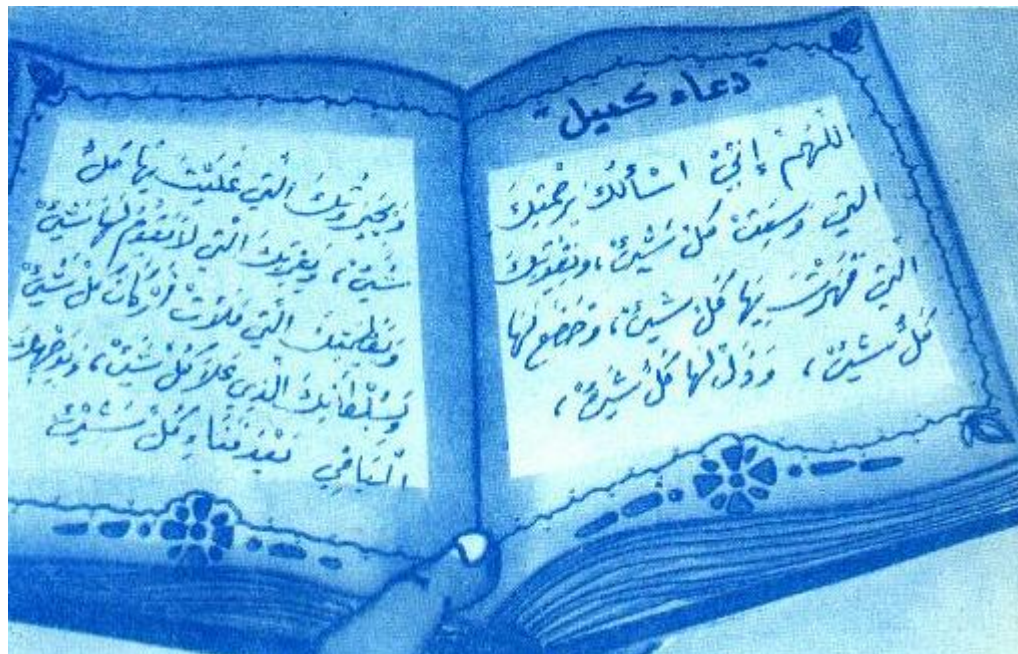 "دعاء كميل"
اللَّهُمَّ إِنِّيْ اسْأَلُكَ بِرَحْمَتِكَ
الَّتِي وَسِعَتْ كُلَّ شَيْءٍ، وَبِقُوَّتِكَ
الَّتِي قَهَرْتَ بِهَا كُلَّ شَيْءٍ، وَخَضَعَ لَهَا
كُلُّ شَيْءٍ، وَذَلَّ لَهَا كُلُّ شَيْءٍ،
وَبِجَبَرُوتِكَ الَّتِي غَلَبْتَ بِهَا كُلَّ
شَيْءٍ، وَبِعِزَّتِكَ الَّتِي لَا يَقُومُ لَهَا شَيْءٌ
وَبِعَظَمَتِكَ الَّتِي مَلَأَتْ أَرْكَانَ كُلِّ شَيْءٍ
وَبِسُلْطَانِكَ الَّذِي عَلَا كُلَّ شَيْءٍ، وَبِوَجْهِكَ
الْبَاقِي بَعْدَ فَنَاءِ كُلِّ شَيْءٍ